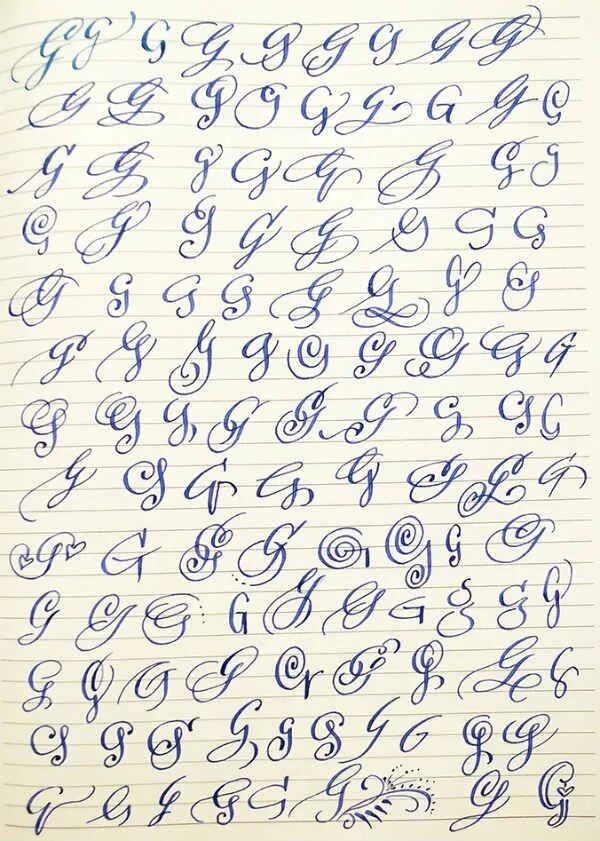 G G G G G G G G G
G G G G G G G G G
G G G G G G G G
G G G G G G G G
G G G G G G G G
G G G G G G G G G
G G G G G G G G G
G G G G G G G G
G G G G G G G G
G G G G G G G G G G
G G G G G G G G G
G G G G G G G G G G
G G G G G G G G